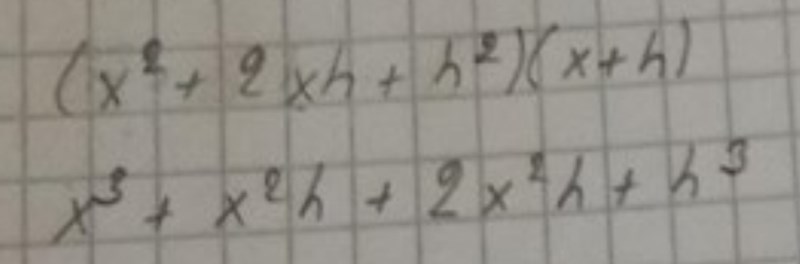 (x² + 2xh + h²)(x+h)
x³ + x²h + 2x²h + h³